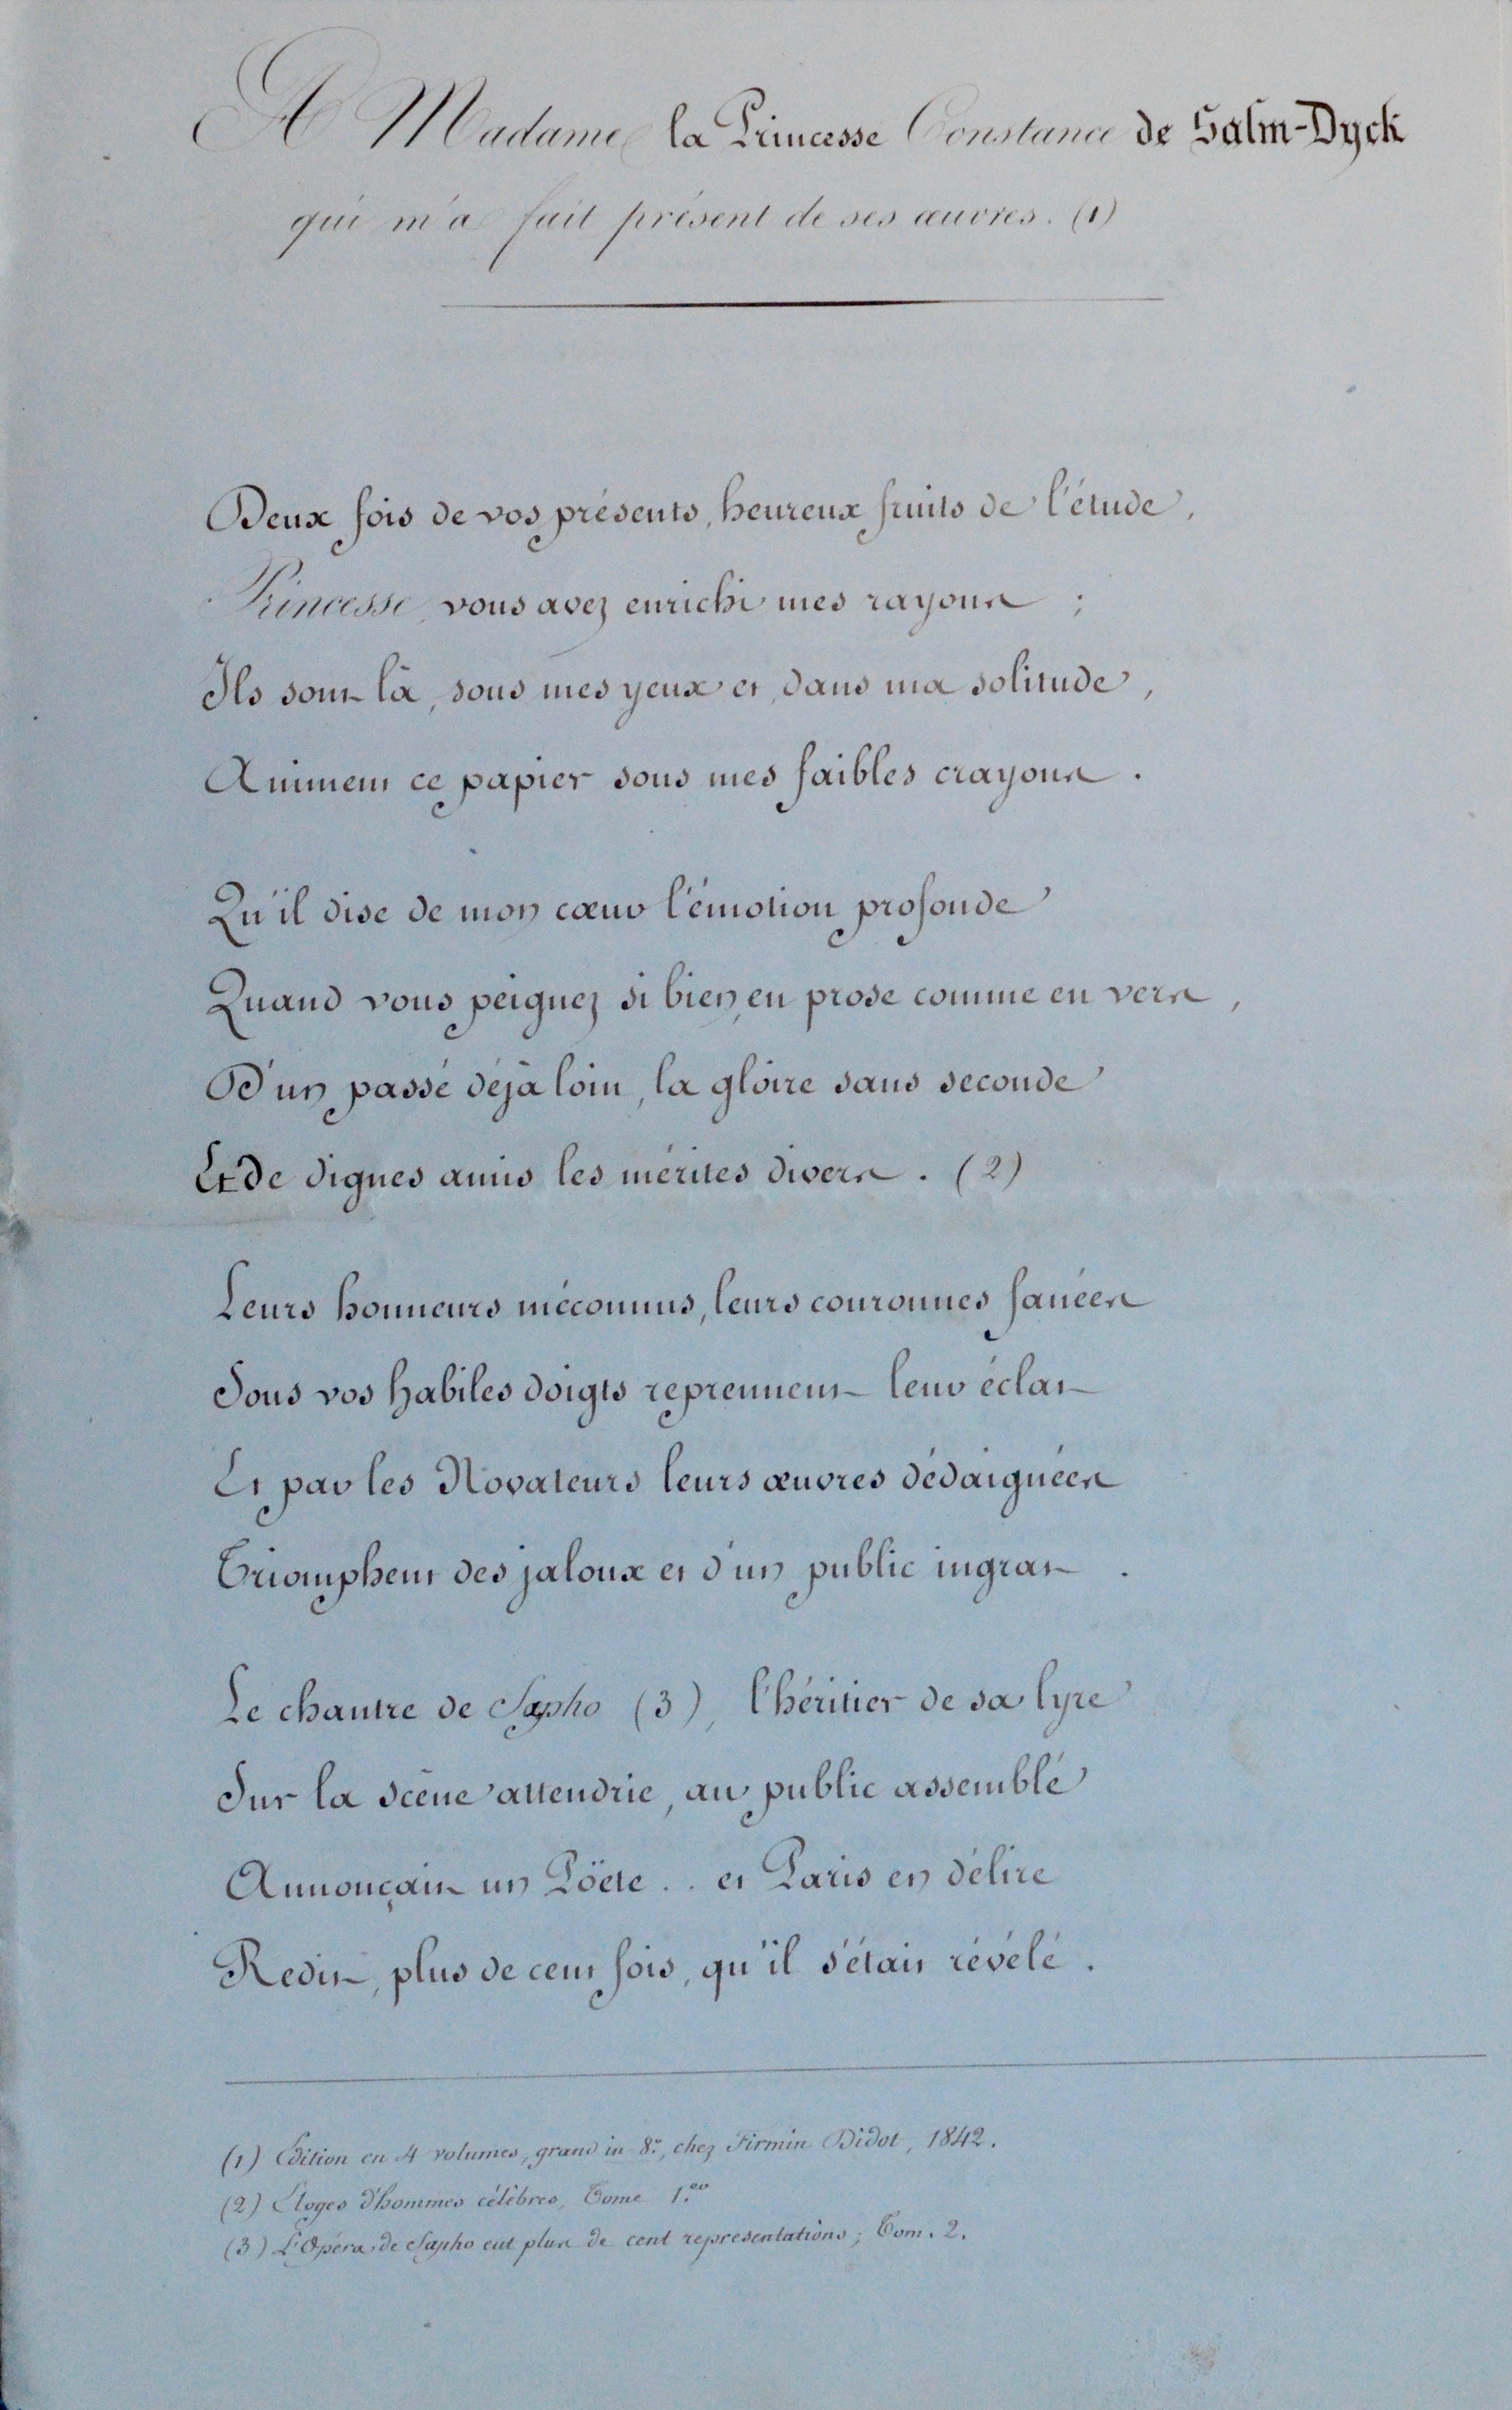 A Madame la Princesse Constance de Salm-Dyck
qui m'a fait présent de ses œuvres. (1)
Deux fois de vos présents, heureux fruits de l'étude,
Princesse, vous avez enrichi mes rayons ;
Ils sont là, sous mes yeux et, dans ma solitude,
Animent ce papier sous mes faibles crayons.
Qu'il dise de mon cœur l'émotion profonde
Quand vous peignez si bien, en prose comme en vers,
D'un passé déjà loin, la gloire sans seconde
Et de dignes amis les mérites divers. (2)
Leurs honneurs méconnus, leurs couronnes fanées
Sous vos habiles doigts reprennent leur éclat
Et par les Novateurs leurs œuvres dédaignées
Triomphent des jaloux et d'un public ingrat.
Le chantre de Sapho (3), l'héritier de sa lyre
Sur la scène attendrie, au public assemblé
Annonçait un Poëte .. et Paris en délire
Redit, plus de cent fois, qu'il s'était révélé.
(1) Edition en 4 volumes, grand in-8.º, chez Firmin Didot, 1842.
(2) Eloges d'hommes célèbres, Tome 1.er
(3) L'Opéra de Sapho eut plus de cent representations ; Tom. 2.